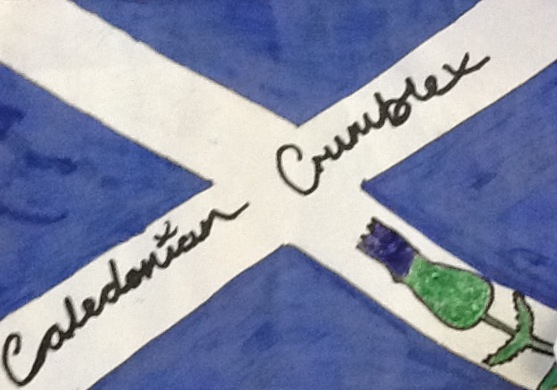 Caledonian Crumblex